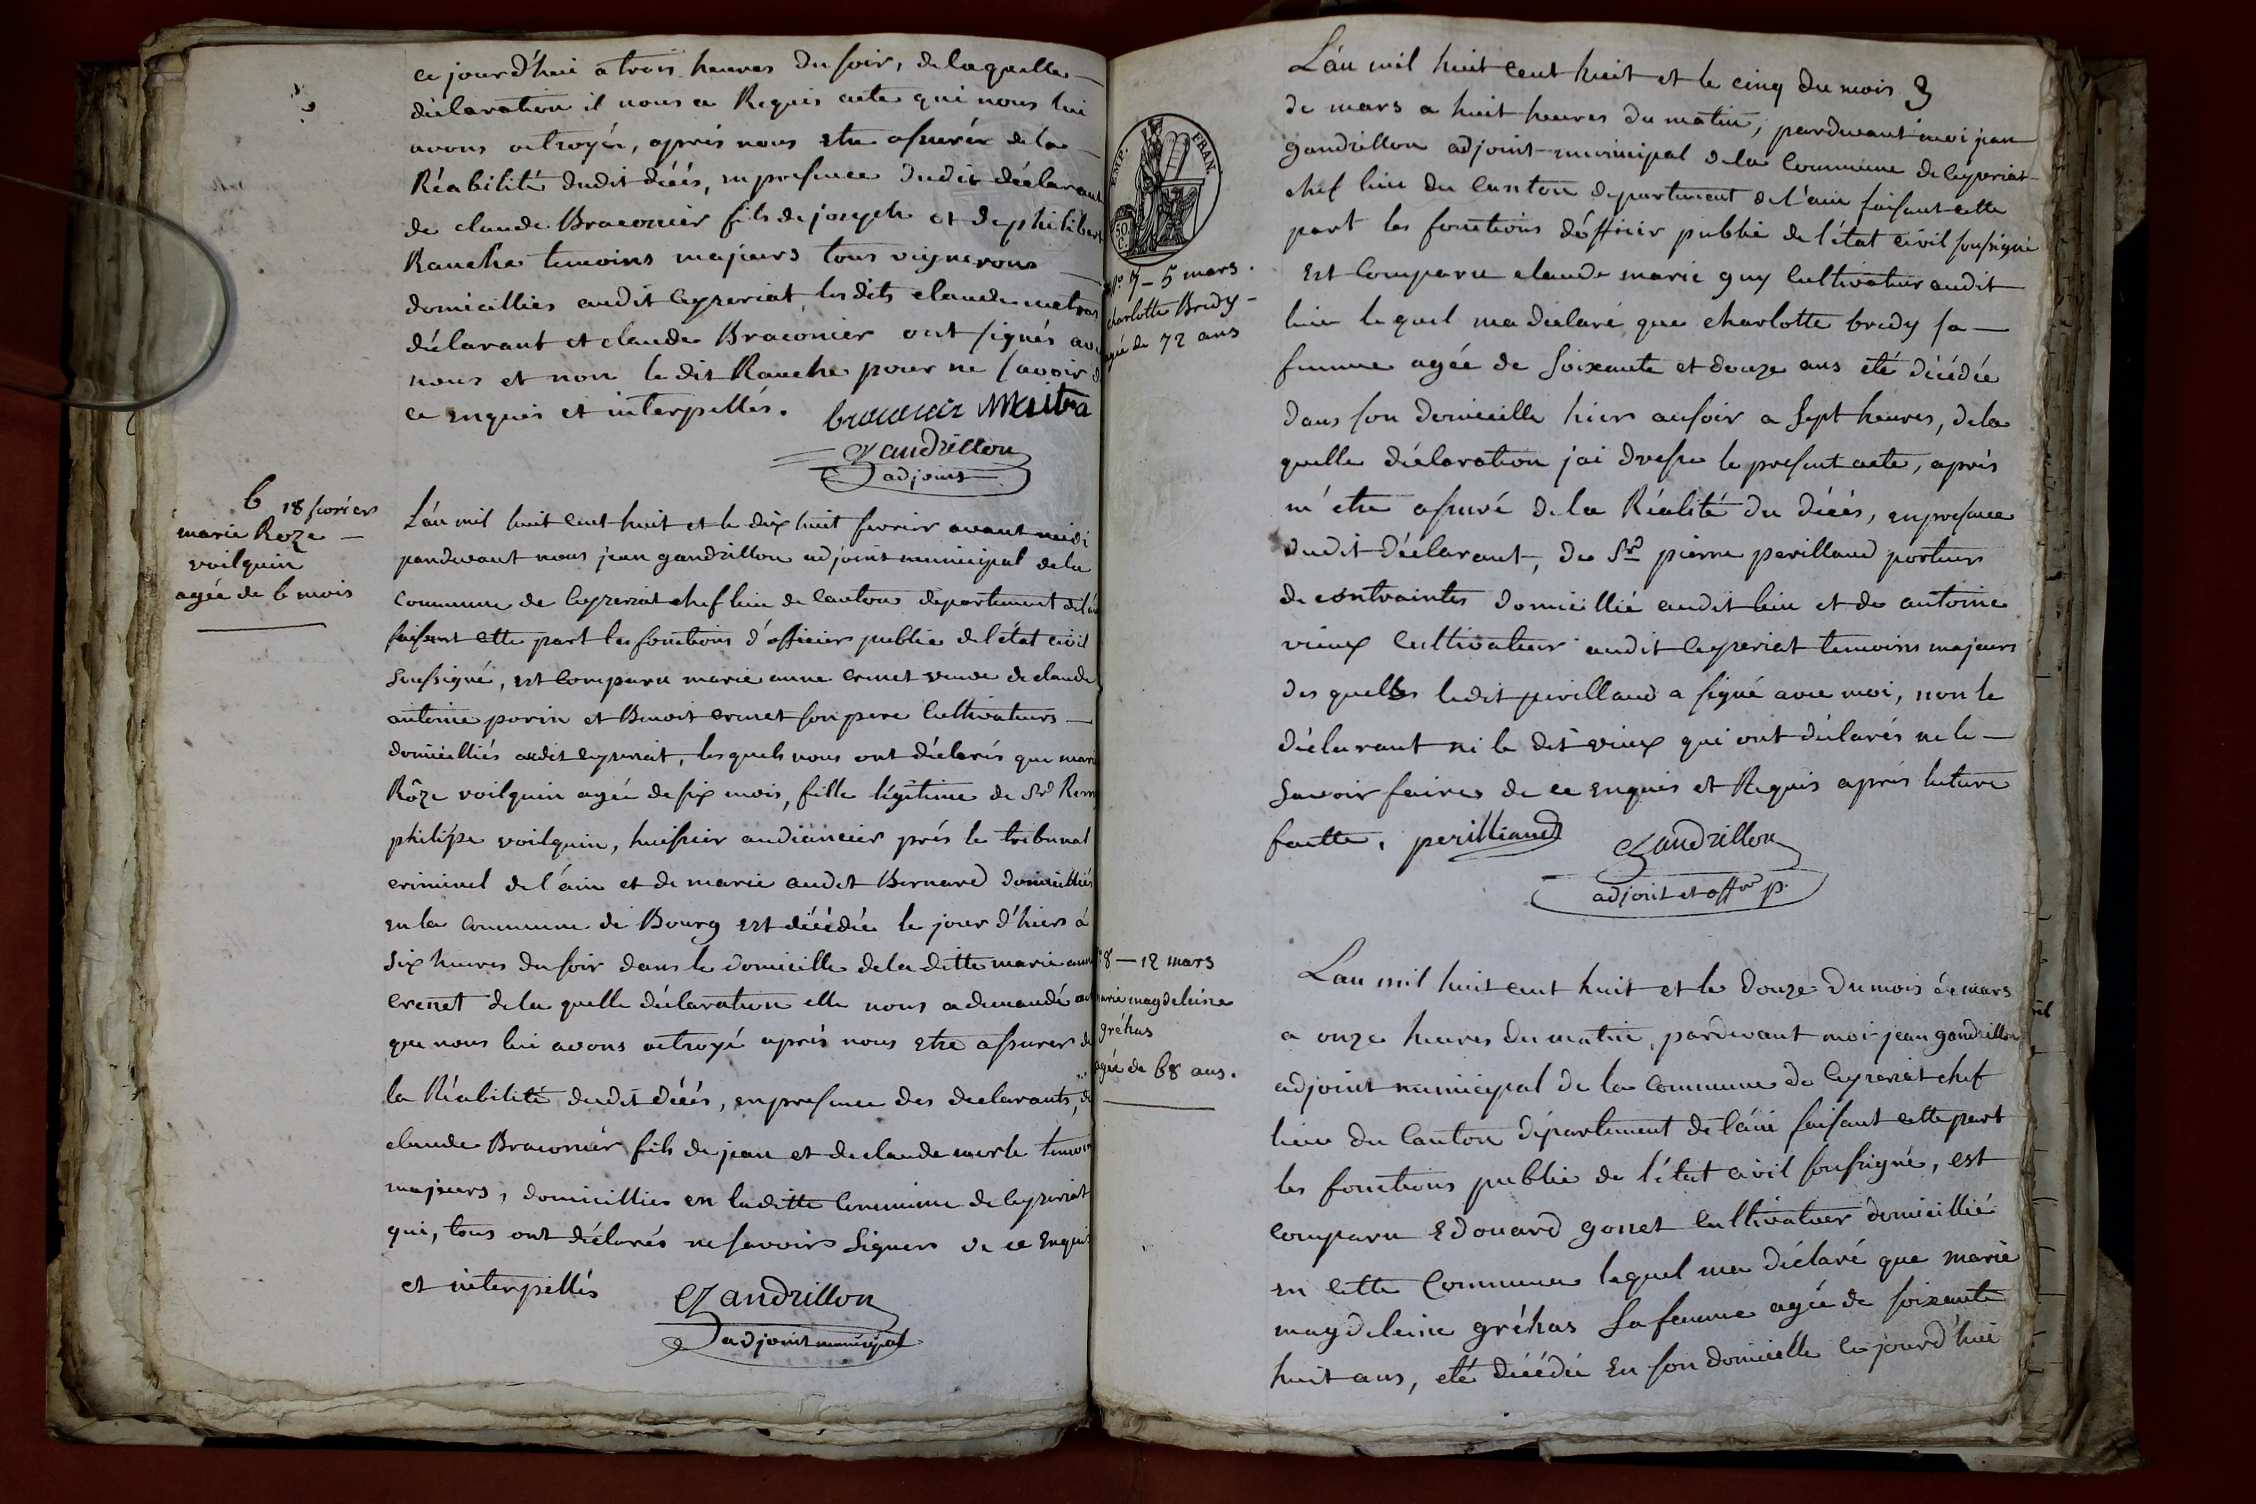 ce jourd'hui a trois heures du soir, de laquelle
déclaration il nous a Requis acte qui nous lui
avons octroyér, aprés nous etre assurér de la
Réabilité dudit décés, en presence dudit déclarant
de claude Braconier fils de joseph et de philibert
Rauche temoins majeurs tous vignerons
domicilliés audit Ceyzeriat les dits claude
déclarant et claude Braconier ont signés avec
nous et non le dit Rauche pour ne savoir
ce enquis et interpellés.
braconier
Gandrillon
adjoint
6 18 fevrier
marie Roze
voilquin
agée de 6 mois
L'an mil huit cent huit et le dix huit fevrier avant midi
pardevant nous jean gandrillon adjoint municipal de la
commune de Ceyzeriat chef lieu de Canton departement de l'ain
faisant cette part les fonctions d'officier public de l'état civil
soussigné, est Comparu marie anne crenet veuve de claude
antoine porin et Benoit crenet son pere Cultivateurs
domicilliés audit Ceyzeriat, lesquels nous ont déclarés que marie
Rôze voilquin agée de six mois, fille légitime de Sr Remy
philippe voilquin, huissier audiancier prés le tribunal
criminel de l'ain et de marie audet Bernard domicilliés
en la Commune de Bourg est décédée le jour d'hiers á
six heures du soir dans le domicille de la ditte marie anne
crenet de la quelle déclaration elle nous a demandé acte
que nous lui avons octroyé aprés nous etre assurer de
la Réabilité dudit décés, en presence des declarants, de
claude Braconier fils de jean et de claude merle temoins
majeurs, domicilliés en la ditte Commune de Ceyzeriat
qui, tous ont déclarés ne savoirs Signers de ce Enquis
et interpellés
Gandrillon
adjoint municipal
EMP. FRAN.
50 C.
No 7 – 5 mars.
charlotte Bredy –
agée de 72 ans
L'an mil huit cent huit et le cinq du mois 3
de mars a huit heures du matin, pardevant moi jean
gandrillon adjoint municipal de la Commune de Ceyzeriat
chef lieu du Canton departement de l'ain faisant cette
part les fonctions d'officier public de l'état civil soussigné
est Comparu claude marie guy Cultivateur audit
lieu lequel ma déclaré que charlotte bredy sa –
femme agée de soixante et douze ans eté décédée
dans son domicille hier au soir a Sept heures, de la
quelle déclaration jai dresse le present acte, aprés
m'etre assuré de la Réalité du décés, en presence
dudit déclarant, de Sr pierre perilland porteur
de contraintes domicillié audit lieu et de antoine
vieux Cultivateur audit Ceyzeriat temoins majeurs
des quelles ledit perilland a signé avec moi, non le
déclarant ni le dit vieux qui ont déclarés ne le –
Savoir faires de ce enquis et Requis aprés lecture
faitte. perilliand
Gandrillon
adjoint et offer p.
No 8 – 12 mars
marie magdeleine
gréhas
agée de 68 ans.
L'an mil huit cent huit et le douze du mois de mars
a onze heures du matin, pardevant moi jean gandrillon
adjoint municipal de la Commune de Ceyzeriat chef
lieu du Canton département de l'ain faisant cette part
les fonctions public de l'état civil soussigné, est
comparu Edouard gonet Cultivateur domicillié
en cette Commune lequel ma déclaré que marie
magdeleine gréhas Sa femme agée de soixante
huit ans, eté décédée En son domicille ce jourd'hui